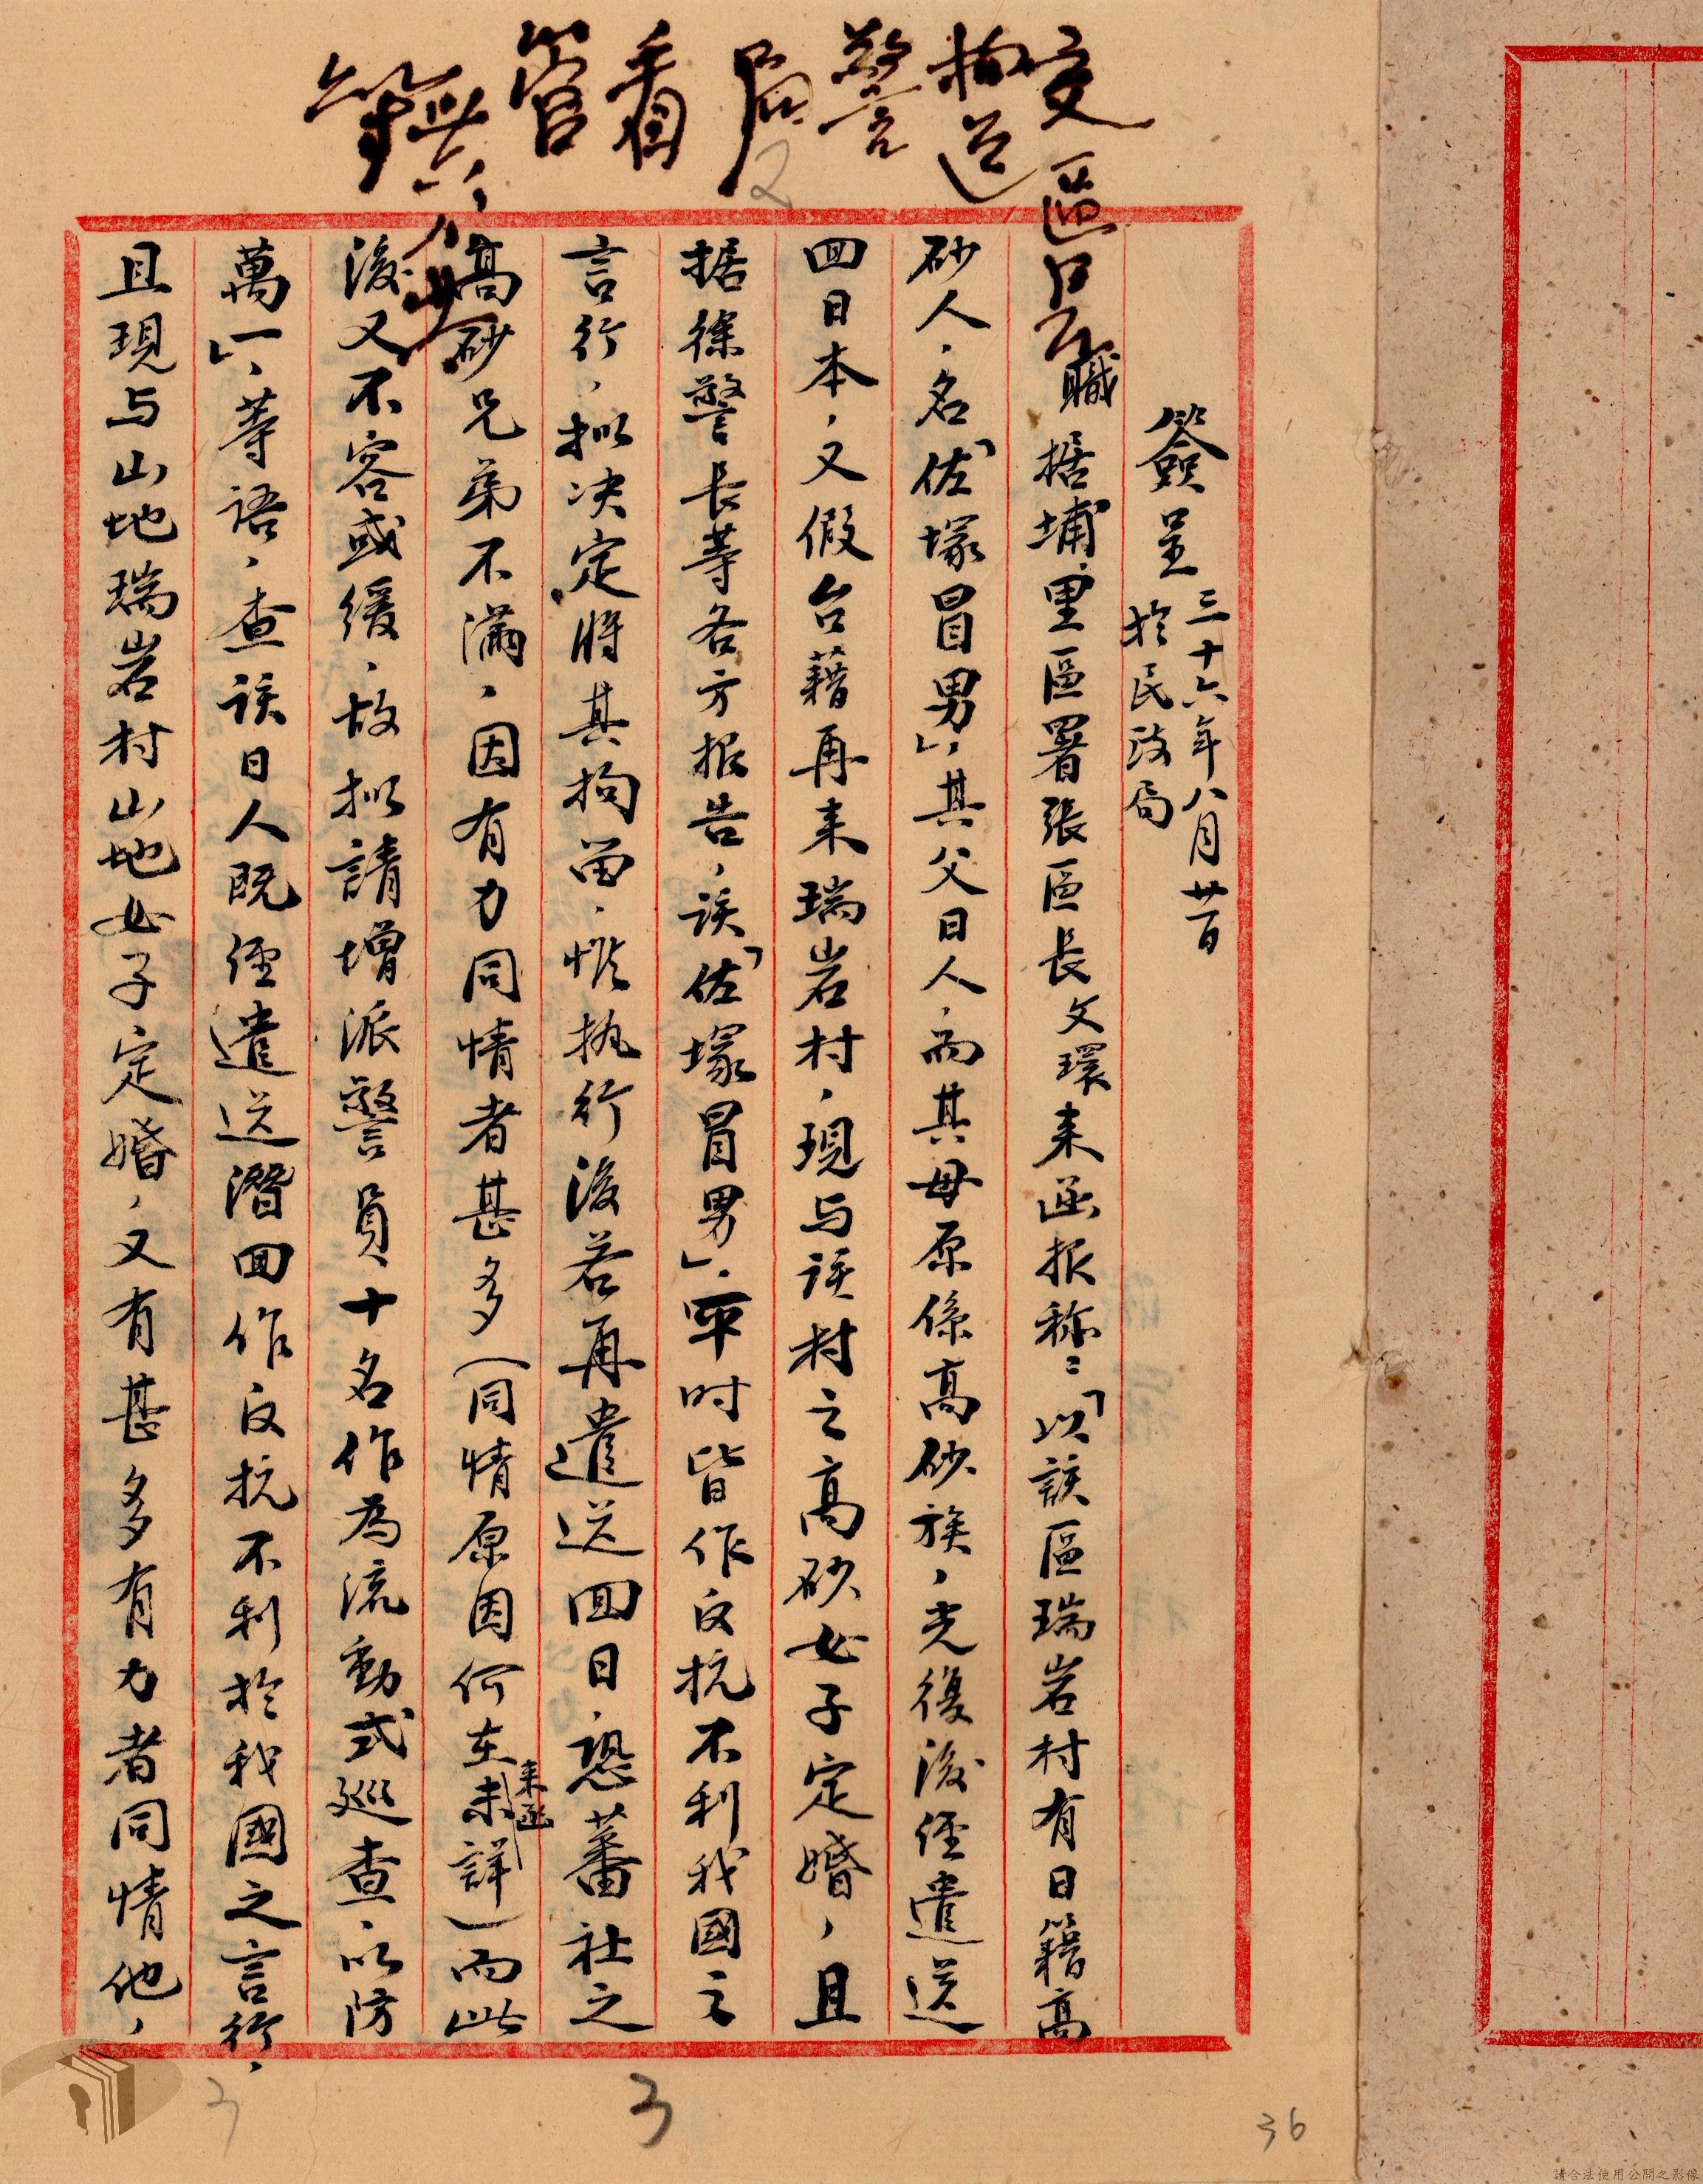 交區
拘送
警
局
看
管
簽呈 三十六年八月廿一日
於民政局
職据埔里區署張區長文環来函报称：「以該區瑞岩村有日籍高
砂人，名「佐塚冒男」，其父日人，而其母原係高砂族，光復後經遣送
回日本，又假台籍再来瑞岩村，現与該村之高砂女子定婚，且
据徐警長等各方报告，該「佐塚冒男」，平时皆作反抗不利我國之
言行，拟决定將其拘留，惟执行後若再遣送回日，恐蕃社之
高砂兄弟不满，因有力同情者甚多（同情原因何在来函未詳）而此
後又不容或缓，故拟請增派警員十名作為流動式巡查，以防
萬一」，等語，查該日人既經遣送潛回作反抗不利於我國之言行，
且現与山地瑞岩村山地女子定婚，又有甚多有力者同情他，
2
3
3
36
請合法使用公開之影像